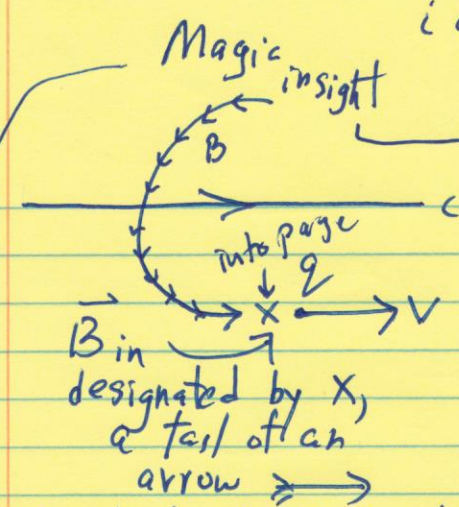 Magic
insight
B
into page
q
X
V
B in
designated by X,
a tail of an
arrow